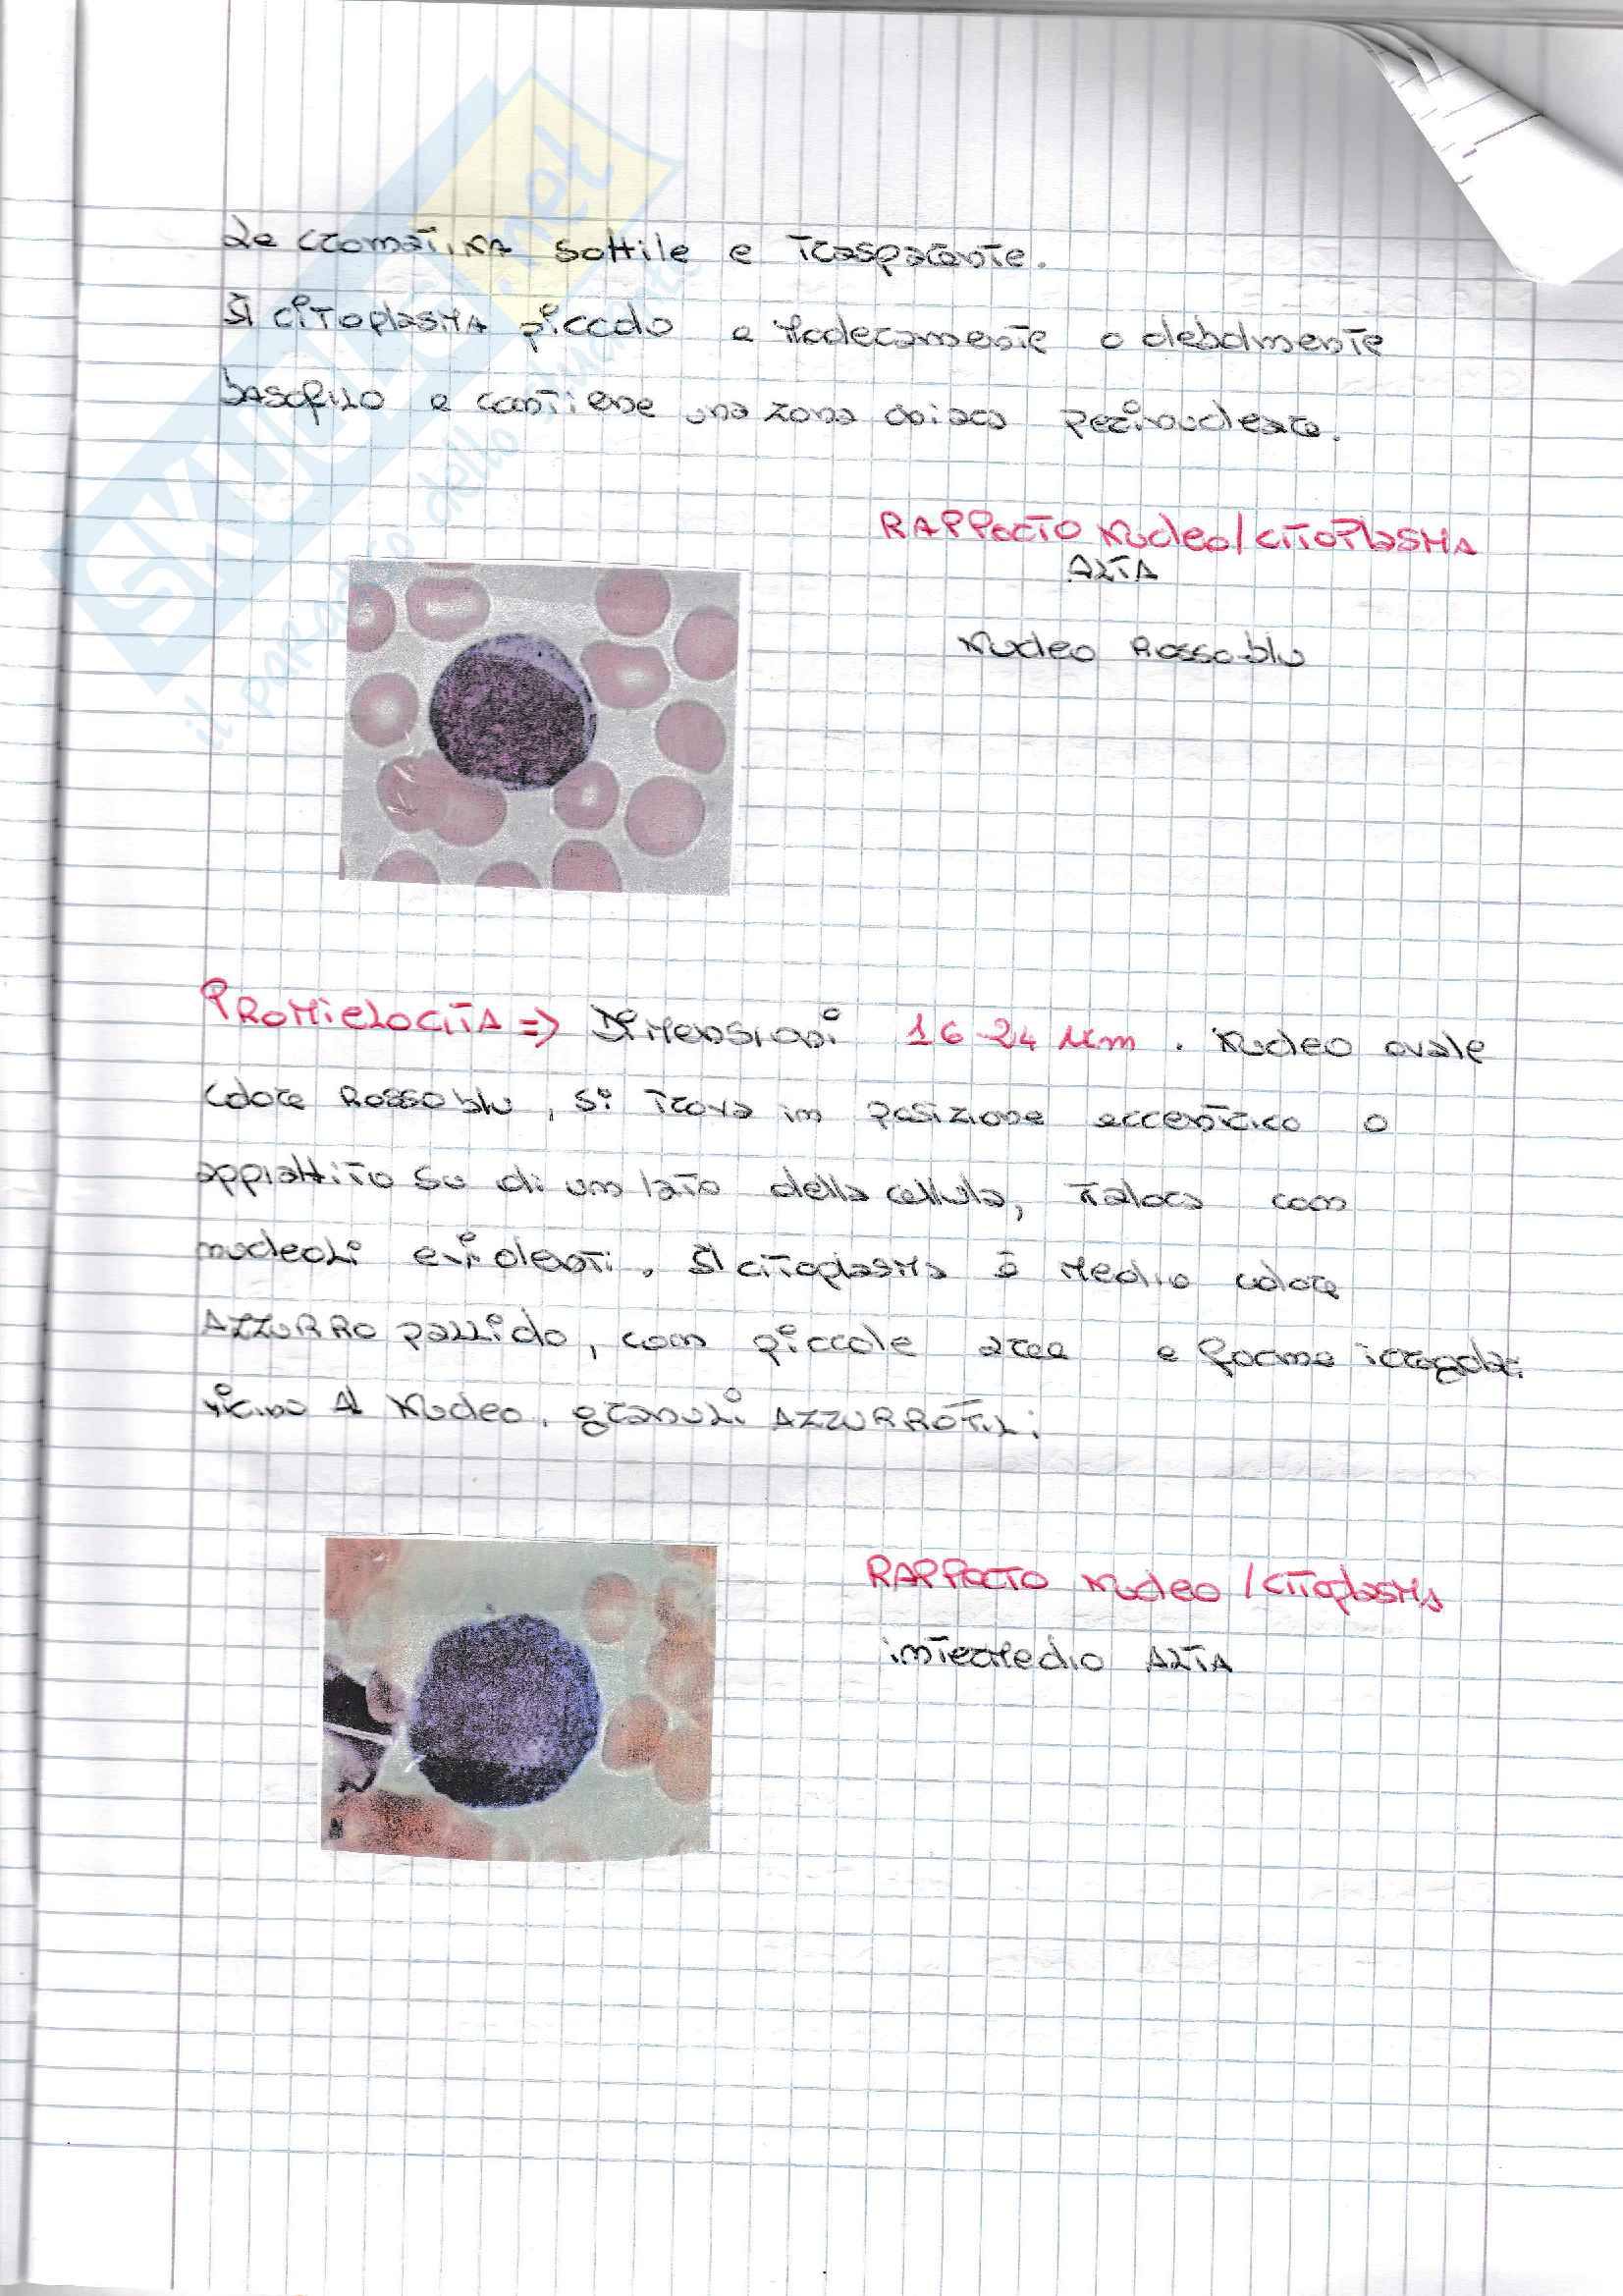 SKUOLA.net
il paradiso dello studente
La cromatina sottile e trasparente.
Il citoplasma piccolo e moderamente o debolmente
basofilo e contiene una zona chiara perinucleare.
RAPPORTO Nucleo/CITOPlasma
ALTA
Nucleo Rosso-blu
PROMIELOCITA => Dimensioni 16-24 µm. Nucleo ovale
colore Rosso blu, si trova in posizione eccentrico o
appiattito su di un lato della cellula, talora con
nucleoli evidenti. Il citoplasma è medio colore
AZZURRO pallido, con piccole aree e forme irregolari
vicino Al Nucleo, granuli AZZURROFILI
RAPPORTO Nucleo/Citoplasma
intermedio ALTA